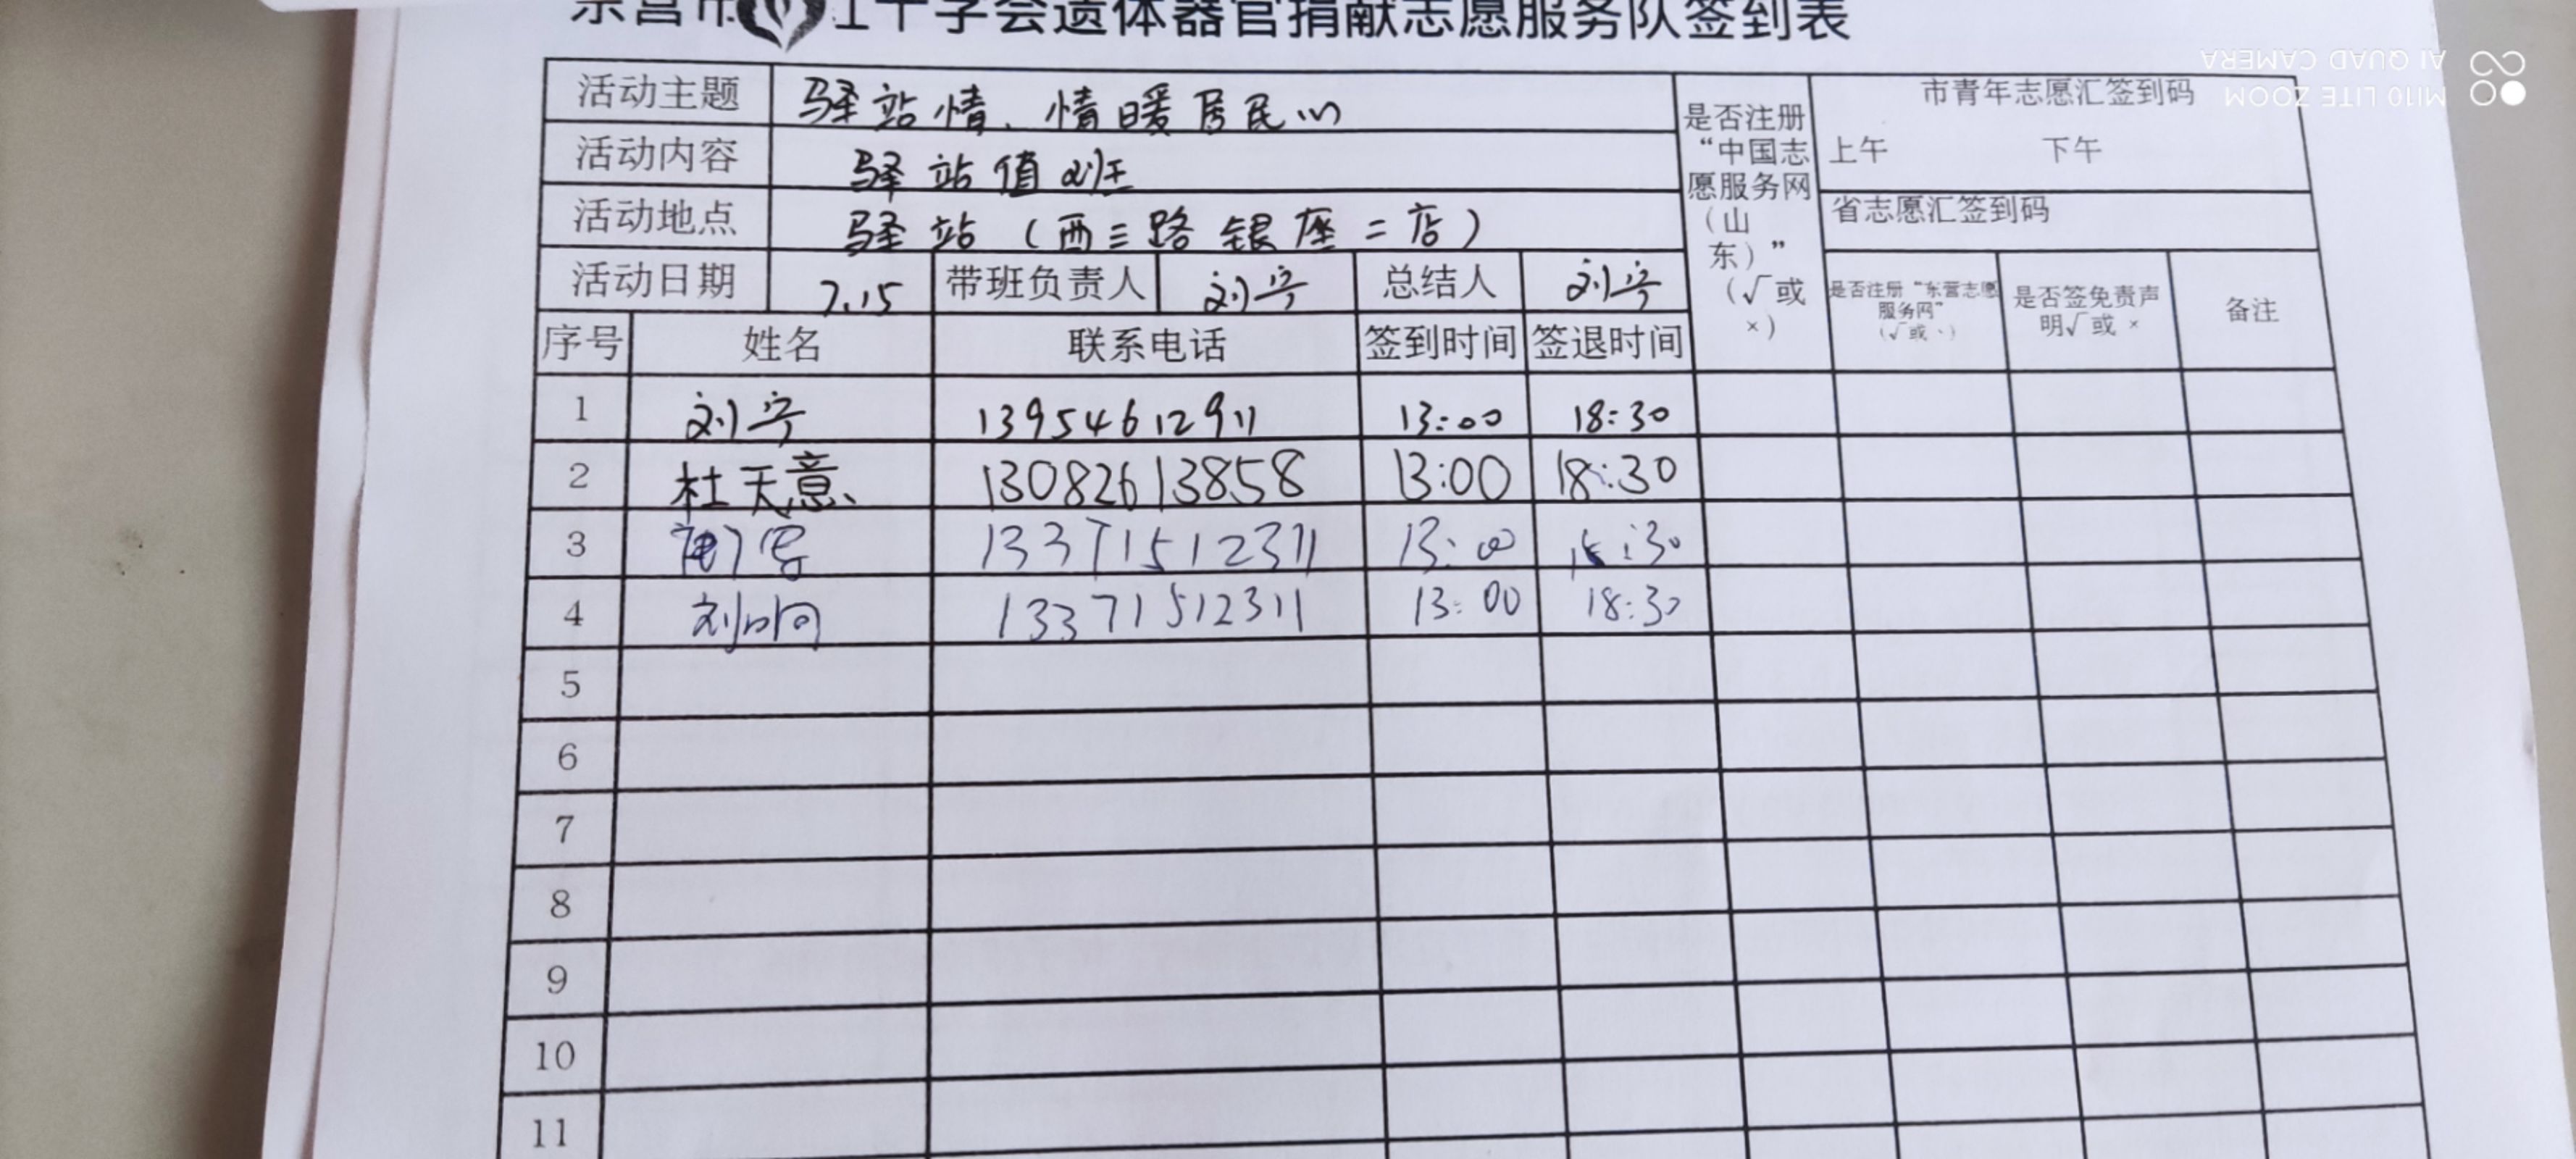 东营市红十字会遗体器官捐献志愿服务队签到表
活动主题 驿站情、情暖居民心
活动内容 驿站值班
活动地点 驿站(西三路银座二店)
活动日期 7.15 带班负责人 刘宁 总结人 刘宁
是否注册
“中国志
愿服务网
(山
东)”
(√或
×)
市青年志愿汇签到码
上午 下午
省志愿汇签到码
是否注册“东营志愿
服务网”
(√或、)
是否签免责声
明√或 ×
备注
序号 姓名 联系电话 签到时间 签退时间
1 刘宁 13954612911 13:00 18:30
2 杜天意 13082613858 13:00 18:30
3 13371512311 13:00
4 13371512311 13:00 18:30
5
6
7
8
9
10
11
MI10 LITE ZOOM
AI QUAD CAMERA